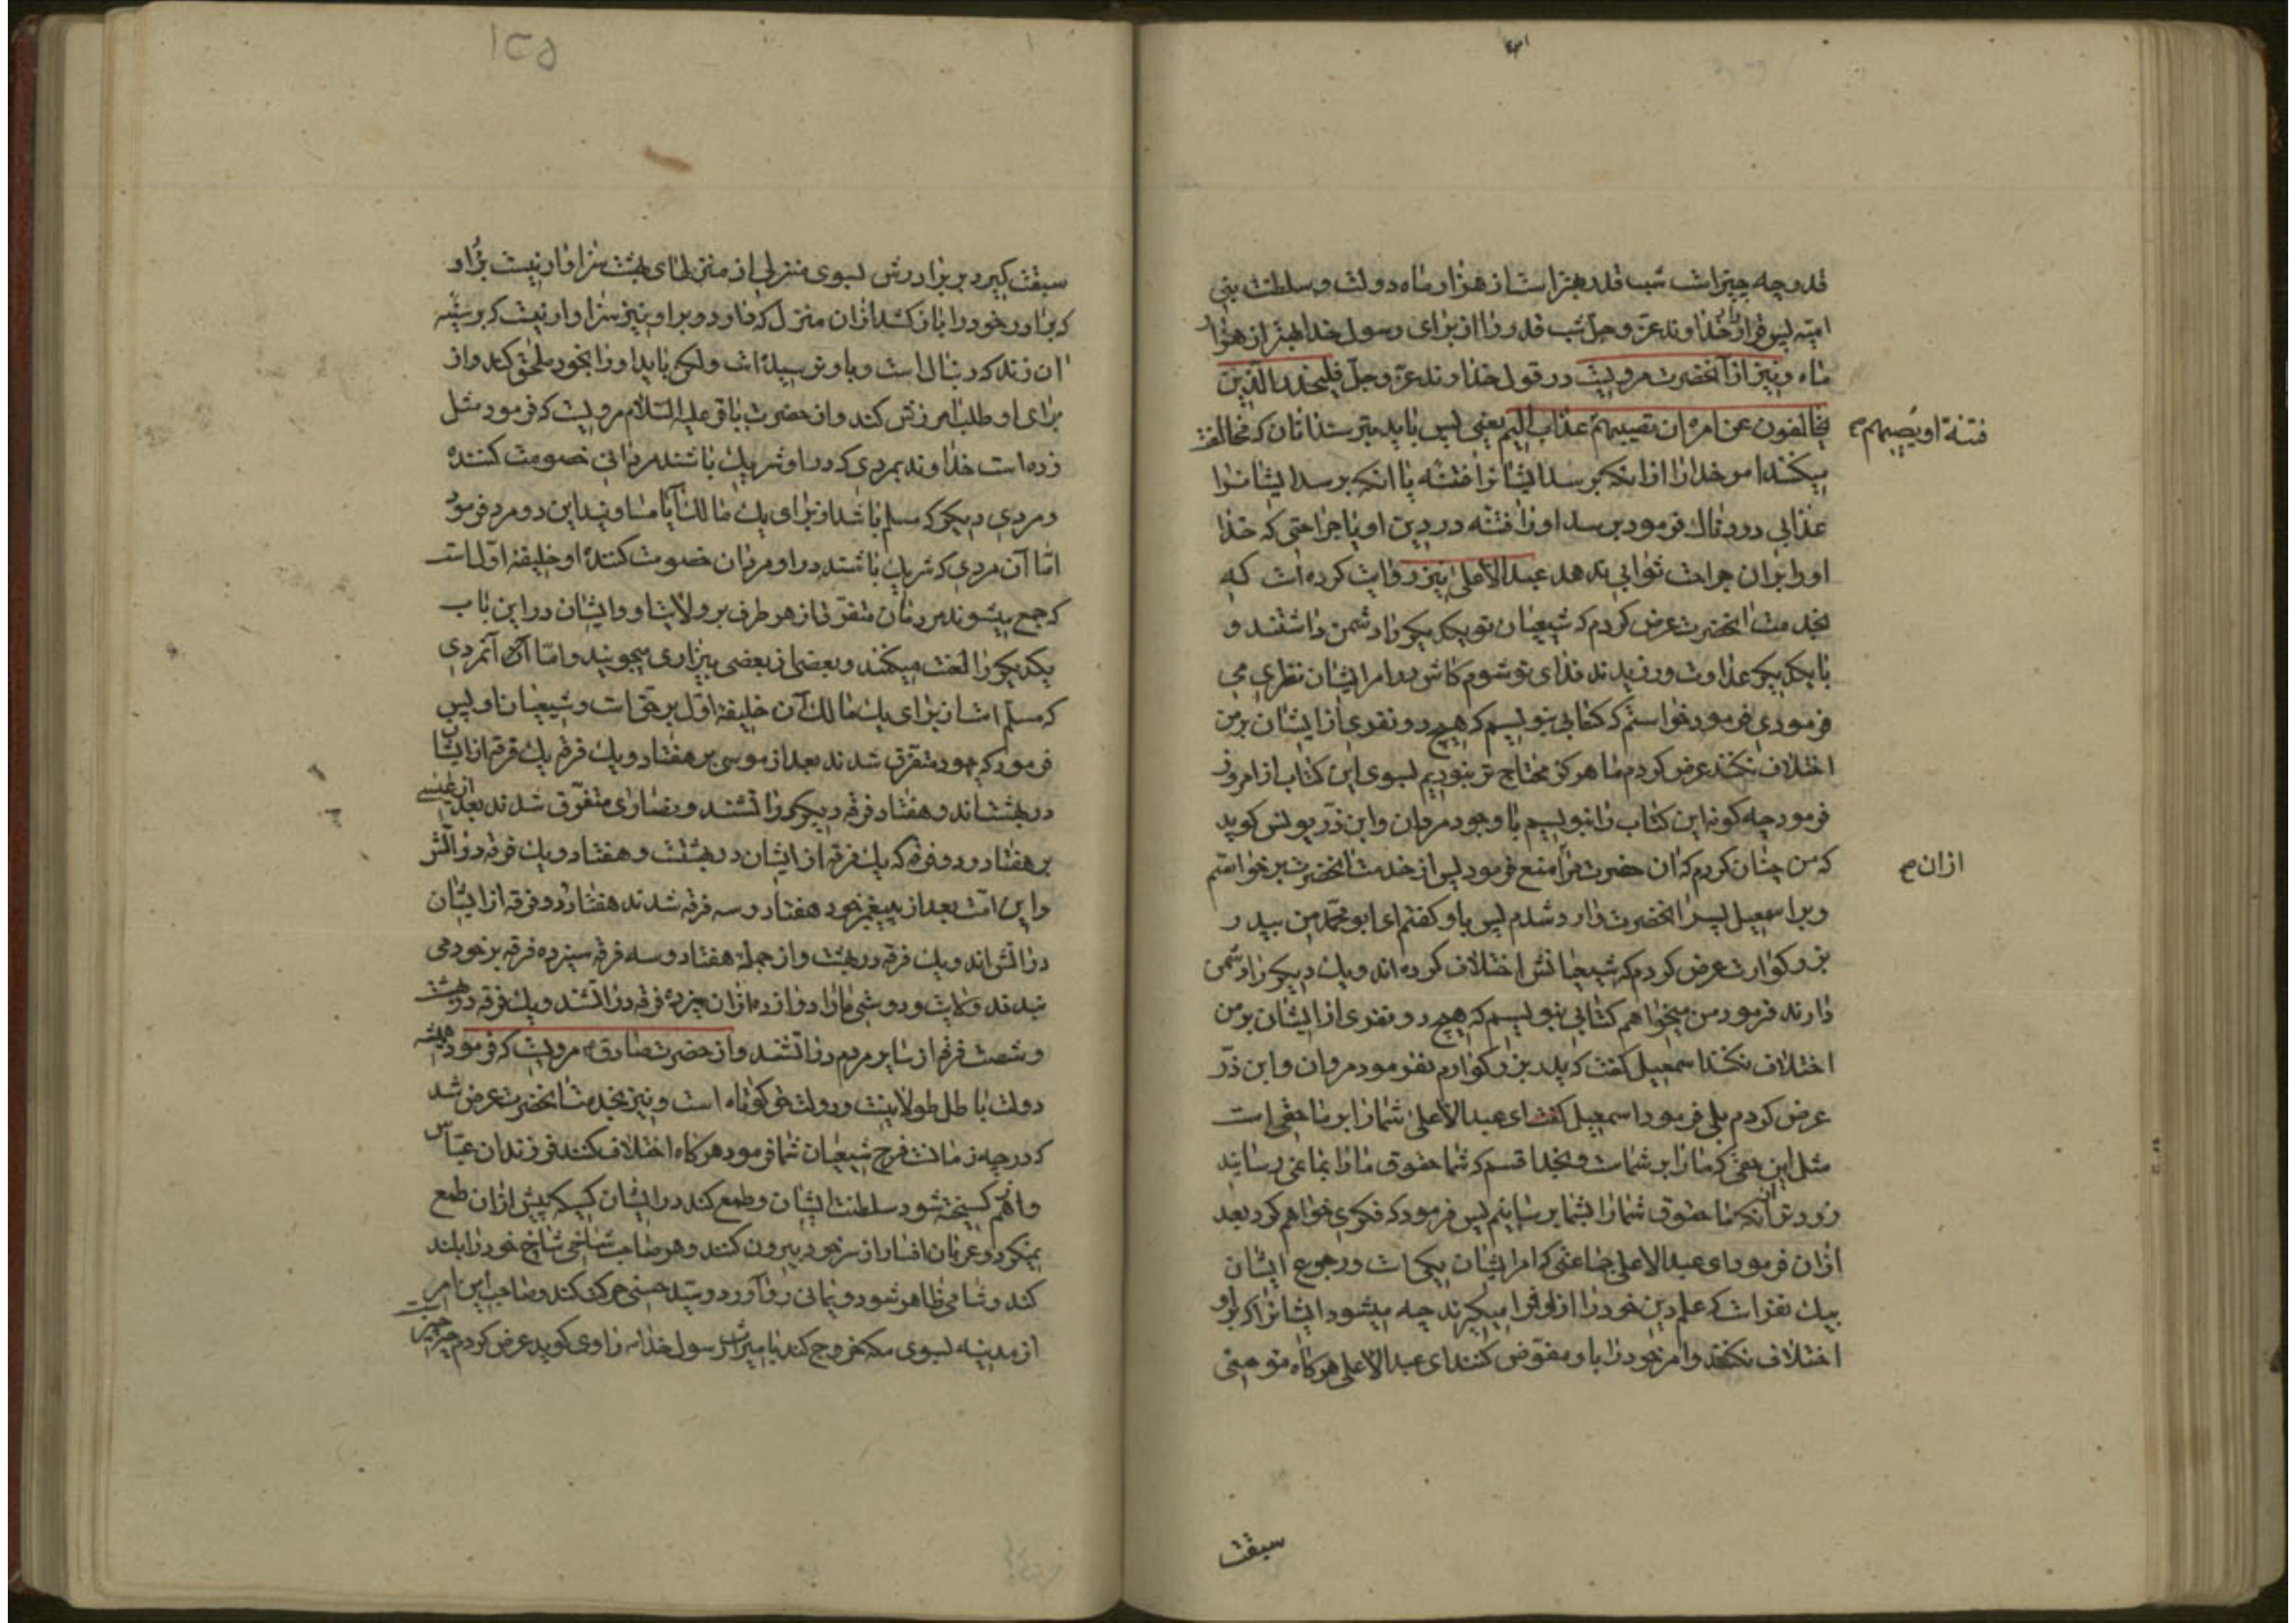 قدر و چه چیز است شب قدر بهتر است از هزار ماه دولت و سلطنت بنی
امیه پس قرار داد خداوند عز و جل شب قدر را از برای رسول خدا بهتر از هزار
ماه و نیز از آنحضرت مرویست در قول خداوند عز و جل فلیحذر الذین
یخالفون عن امره ان تصیبهم عذاب الیم یعنی پس باید بترسند انان که مخالفت
فتنة او یصیبهم صح
میکنند امر خدا را از انکه برسد ایشانرا فتنه یا انکه برسد ایشانرا
عذابی دردناک فرمود برسد او را فتنه در دین او یا جراحتی که خدا
او را بران جراحت ثوابی ندهد عبد الاعلی نیز روایت کرده است که
بخدمت انحضرت عرض کردم که شیعیان تو یکدیکر را دشمن داشتند و
با یکدیکر عداوت ورزیدند فدای تو شوم کاش در امر ایشان نظری می
فرمودی فرمود خواستم که کتابی بنویسم که هیچ دو نفری از ایشان بر من
اختلاف نکنند عرض کردم ما هرکز محتاج تر نبودیم بسوی این کتاب از امروز
فرمود چه کونه این کتاب را بنویسم با وجود مروان و ابن ذر پس کوید
که من چنان کردم که ان حضرت مرا منع فرمود پس از خدمت انحضرت برخواستم
ازان صح
و بر اسمعیل پسر انحضرت وارد شدم پس باو کفتم ای ابو محمد من بپدر
بزرکوارت عرض کردم که شیعیانش اختلاف کرده اند و یک دیکر را دشمن
دارند فرمود من میخواهم کتابی بنویسم که هیچ دو نفری از ایشان بر من
اختلاف نکنند اسمعیل کفت که پدر بزرکوارم نفرمود مروان و ابن ذر
عرض کردم بلی فرمود اسمعیل کفت ای عبد الاعلی شما را بر ما حقی است
مثل این حقی که ما را بر شماست و بخدا قسم که شما حقوق ما را بما نمی رسانید
زودتر از انکه ما حقوق شما را بشما برسانیم پس فرمود که فکری خواهم کرد بعد
ازان فرمود ای عبد الاعلی جماعتی که امر ایشان یکی است و رجوع ایشان
بیک نفر است که علم دین خود را از او فرا میکیرند چه میشود ایشانرا که بر او
اختلاف نکنند و امر خود را باو مفوض کنند ای عبد الاعلی هرکاه مؤمنی
سبقت
۱۲۵
سبقت کیرد بر برادرش بسوی منزلی از منزلهای بهشت سزاوار نیست بر او
که برادر خود را باز کشد ازان منزل که دارد و بر او نیز سزاوار نیست که بر سینه
ان زند که در دنبال است و باو نرسیده است ولکن باید او را بخود ملحق کند و از
برای او طلب امرزش کند و از حضرت باقر علیه السلام مرویست که فرمود مثل
زده است خداوند بمردی که در او شریک باشند مردانی خصومت کننده
و مردی دیکر که مسلم باشد از برای یک مالک آیا مساویند این دو مرد فرمود
اما آن مردی که شریک باشند در او مردمان خصومت کننده او خلیفه اول است
که جمع میشوند مردمان متفرق از هر طرف بر ولایت او و ایشان در این باب
یکدیکر را لعنت میکنند و بعضی از بعضی بیزاری میجویند و اما آن آنمردی
که مسلم است از برای یک مالک آن خلیفه اول بر حق است و شیعیان او پس
فرمود که یهود متفرق شدند بعد از موسی بر هفتاد و یک فرقه یک فرقه از ایشان
در بهشت اند و هفتاد فرقه دیکر در آتشند و نصاری متفرق شدند بعد از عیسی
بر هفتاد و دو فرقه که یک فرقه از ایشان در بهشت و هفتاد و یک فرقه در آتش
و این امت بعد از پیغمبر خود هفتاد و سه فرقه شدند هفتاد و دو فرقه از ایشان
در آتش اند و یک فرقه در بهشت و از جمله هفتاد و سه فرقه سیزده فرقه بر خود می
بندند ولایت و دوستی ما را دوازده ازان سیزده فرقه در آتشند و یک فرقه در بهشت
و شصت فرقه از سایر مردم در آتشند و از حضرت صادق مرویست که فرمود همیشه
دولت باطل طولانیست و دولت حق کوتاه است و نیز بخدمت انحضرت عرض شد
که در چه زمانست فرج شیعیان شما فرمود هرکاه اختلاف کنند فرزندان عباس
و از هم کسیخته شود سلطنت ایشان و طمع کند در ایشان کسیکه پیش ازان طمع
نمیکرد و عربان افسار از سر خود بیرون کنند و هر صاحب شاخی شاخ خود را بلند
کند و شامی ظاهر شود و یمانی رو آورد و سید حسنی حرکت کند و صاحب این امر
از مدینه بسوی مکه خروج کند با میراث رسول خدا ص راوی کوید عرض کردم چه چیز است